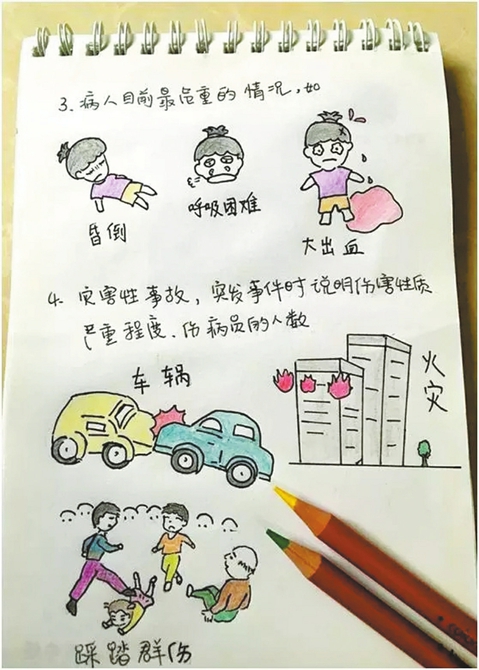 3. 病人目前最危重的情况，如
昏倒
呼吸困难
大出血
4. 灾害性事故，突发事件时说明伤害性质
严重程度、伤病员的人数
车祸
火灾
踩踏群伤